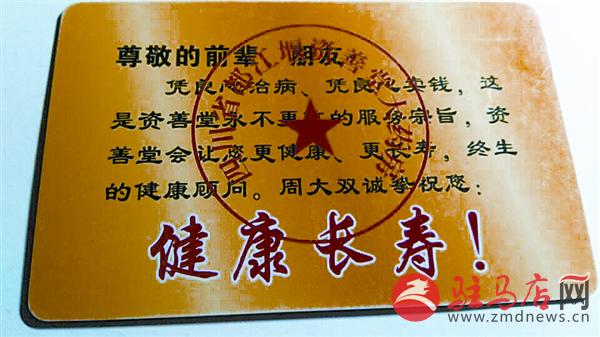 尊敬的前辈 朋友
凭良心治病、凭良心卖钱，这
是资善堂永不更的服务宗旨，资
善堂会让您更健康、更长寿，终生
的健康顾问。周大双诚挚祝您：
健康长寿！
四川省都江堰资善堂大药房
驻马店网
www.zmdnews.cn